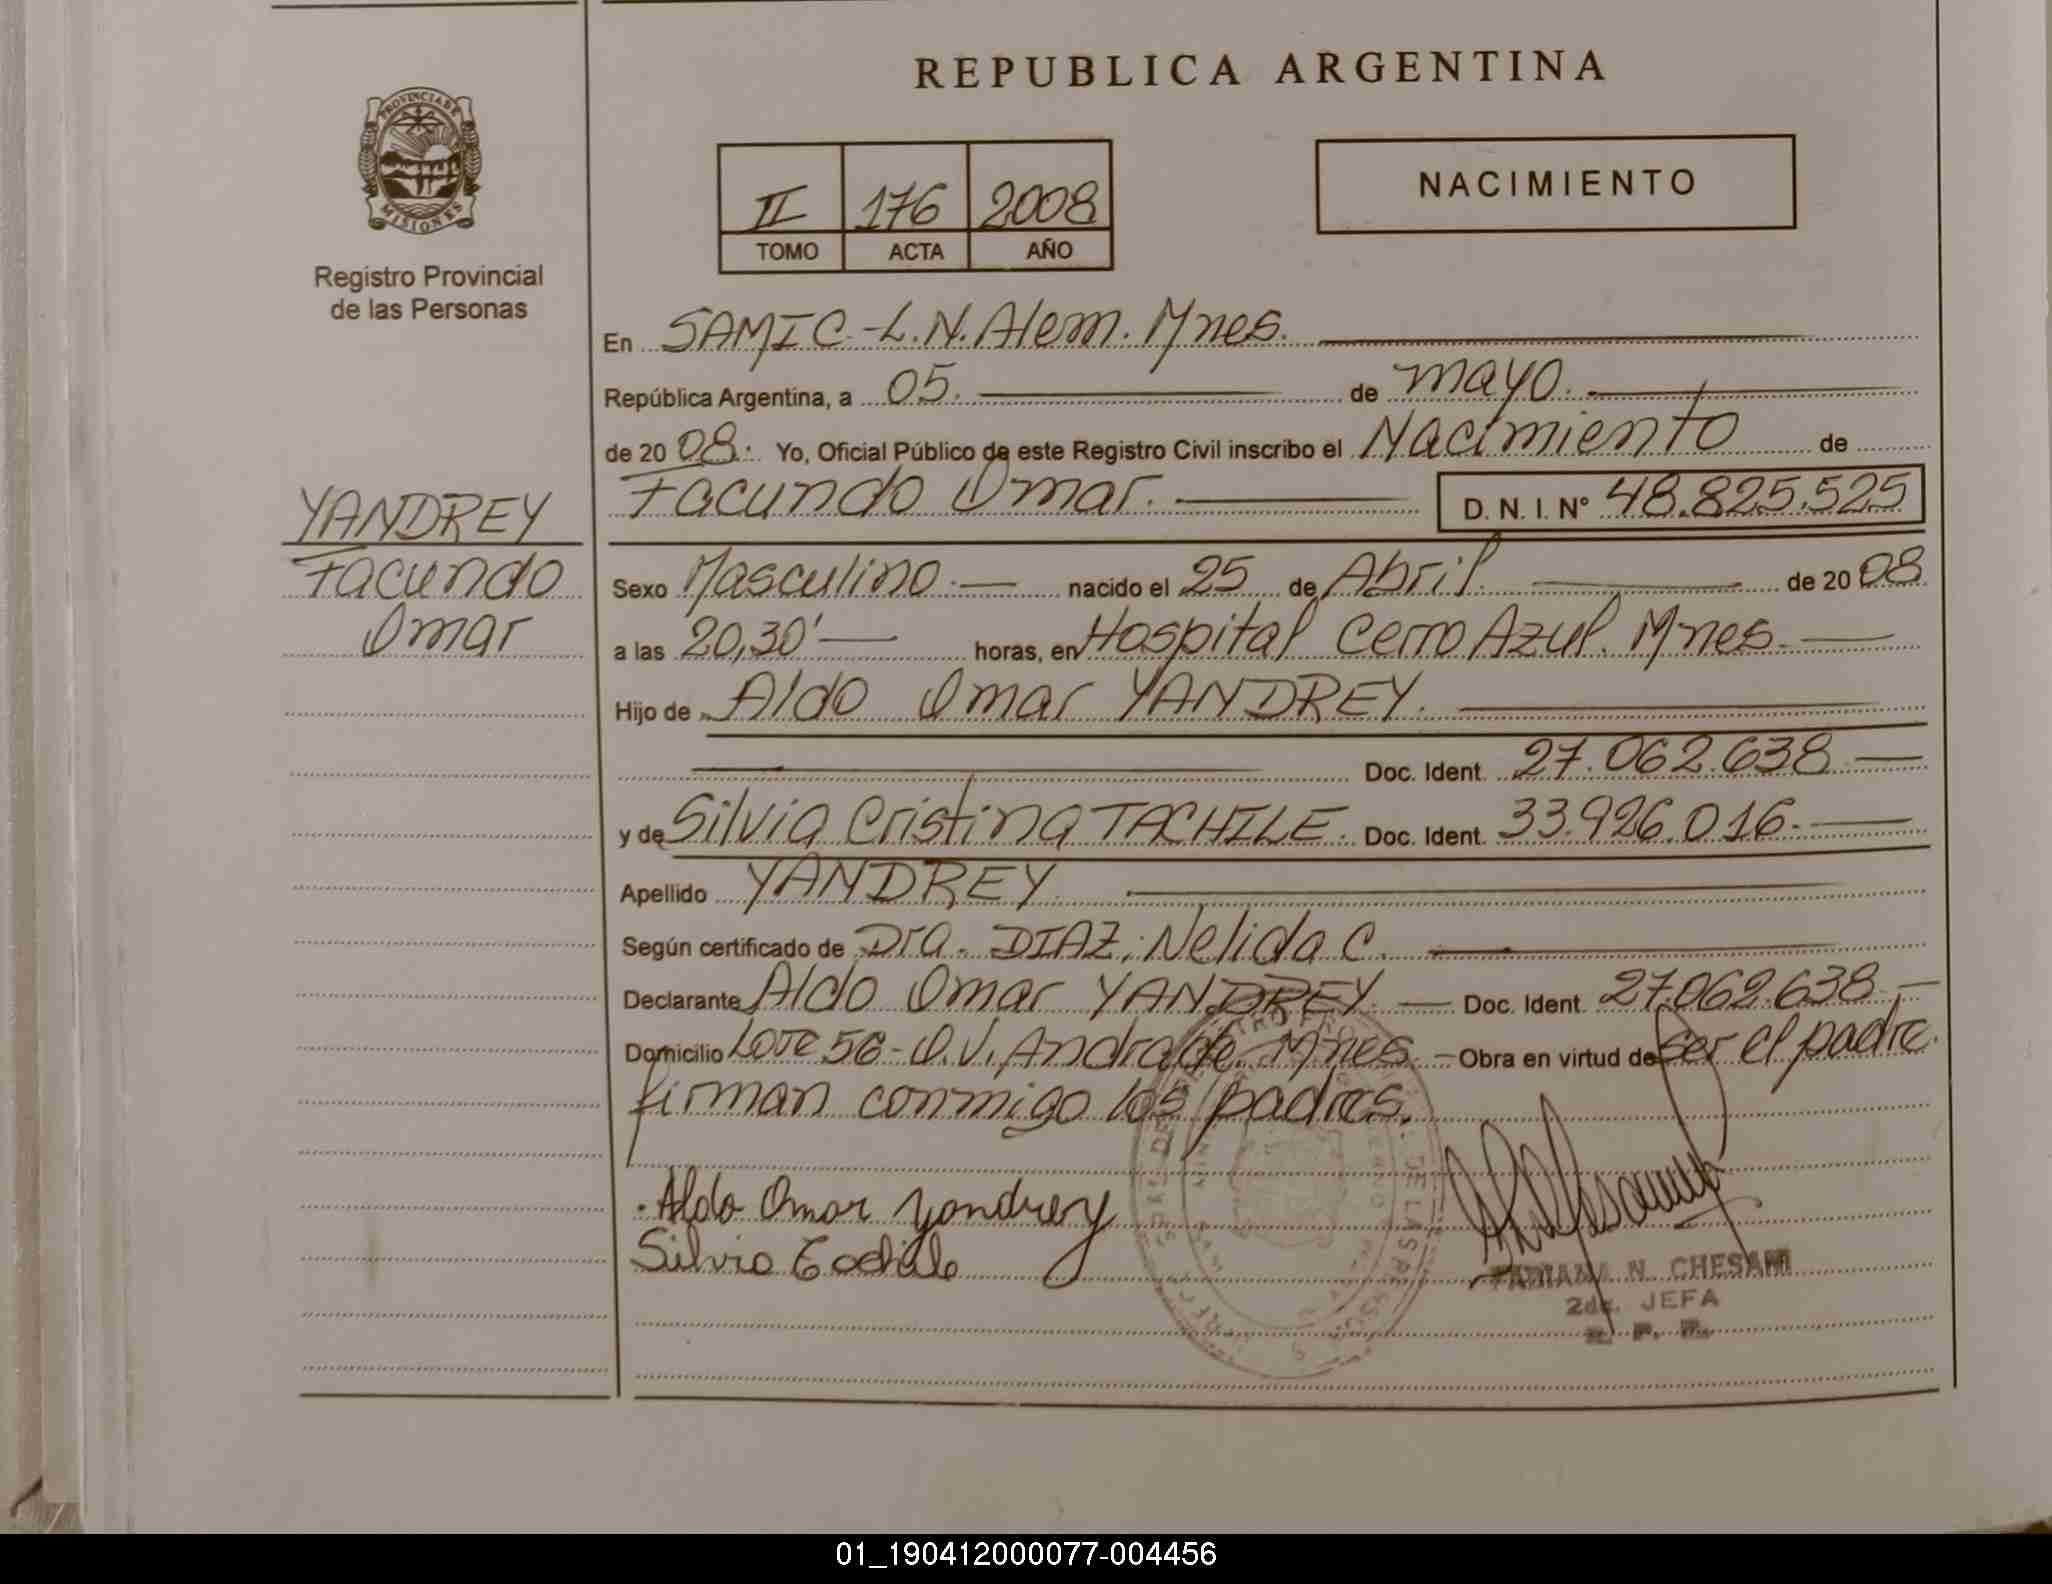 REPUBLICA ARGENTINA
PROVINCIA DE
MISIONES
Registro Provincial
de las Personas
II 176 2008
TOMO ACTA AÑO
NACIMIENTO
En SAMIC.-L.N. Alem. Mnes.
República Argentina, a 05. de mayo.
de 2008. Yo, Oficial Público de este Registro Civil inscribo el Nacimiento de
Facundo Omar. D. N. I. Nº 48.825.525
YANDREY
Facundo
Omar
Sexo Masculino.- nacido el 25 de Abril. de 2008
a las 20,30' horas, en Hospital Cerro Azul. Mnes.
Hijo de Aldo Omar YANDREY.
Doc. Ident. 27.062.638
y de Silvia Cristina TACHILE. Doc. Ident. 33.926.016.
Apellido YANDREY
Según certificado de Dra. DIAZ, Nelida C.
Declarante Aldo Omar YANDREY. Doc. Ident. 27.062.638.-
Domicilio Lote 56-O.V. Andrade. Mnes. - Obra en virtud de ser el padre.
firman conmigo los padres.
Aldo Omar Yandrey
Silvia
N. CHESANI
2da. JEFA
R. P. P.
01_190412000077-004456